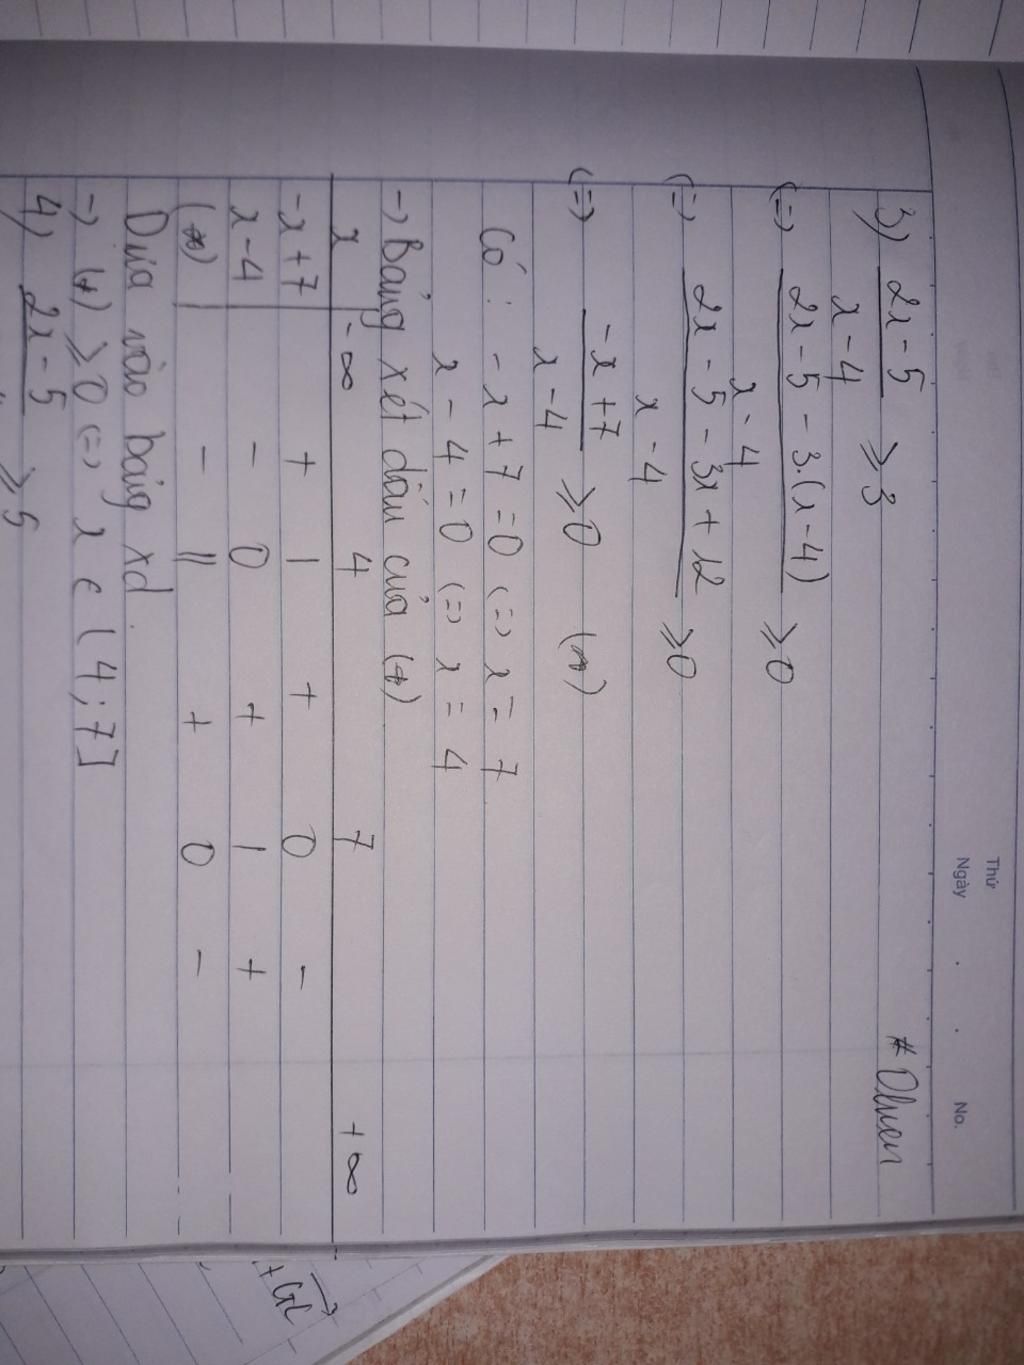 Thứ
Ngày . . No.
# Olwen
3) 2x - 5 ≥ 3
x - 4
(=) 2x - 5 - 3.(x - 4) ≥ 0
x - 4
(=) 2x - 5 - 3x + 12 ≥ 0
x - 4
(=) -x + 7 ≥ 0 (*)
x - 4
Có : - x + 7 = 0 (=) x = 7
x - 4 = 0 (=) x = 4
-> Bảng xét dấu của (*)
x -∞ 4 7 +∞
-x + 7 + | + 0 -
x - 4 - 0 + | +
(*) - || + 0 -
Dựa vào bảng xd
-> (*) ≥ 0 (=) x ∈ (4 ; 7]
4) 2x - 5 ≥ 5
+ GC